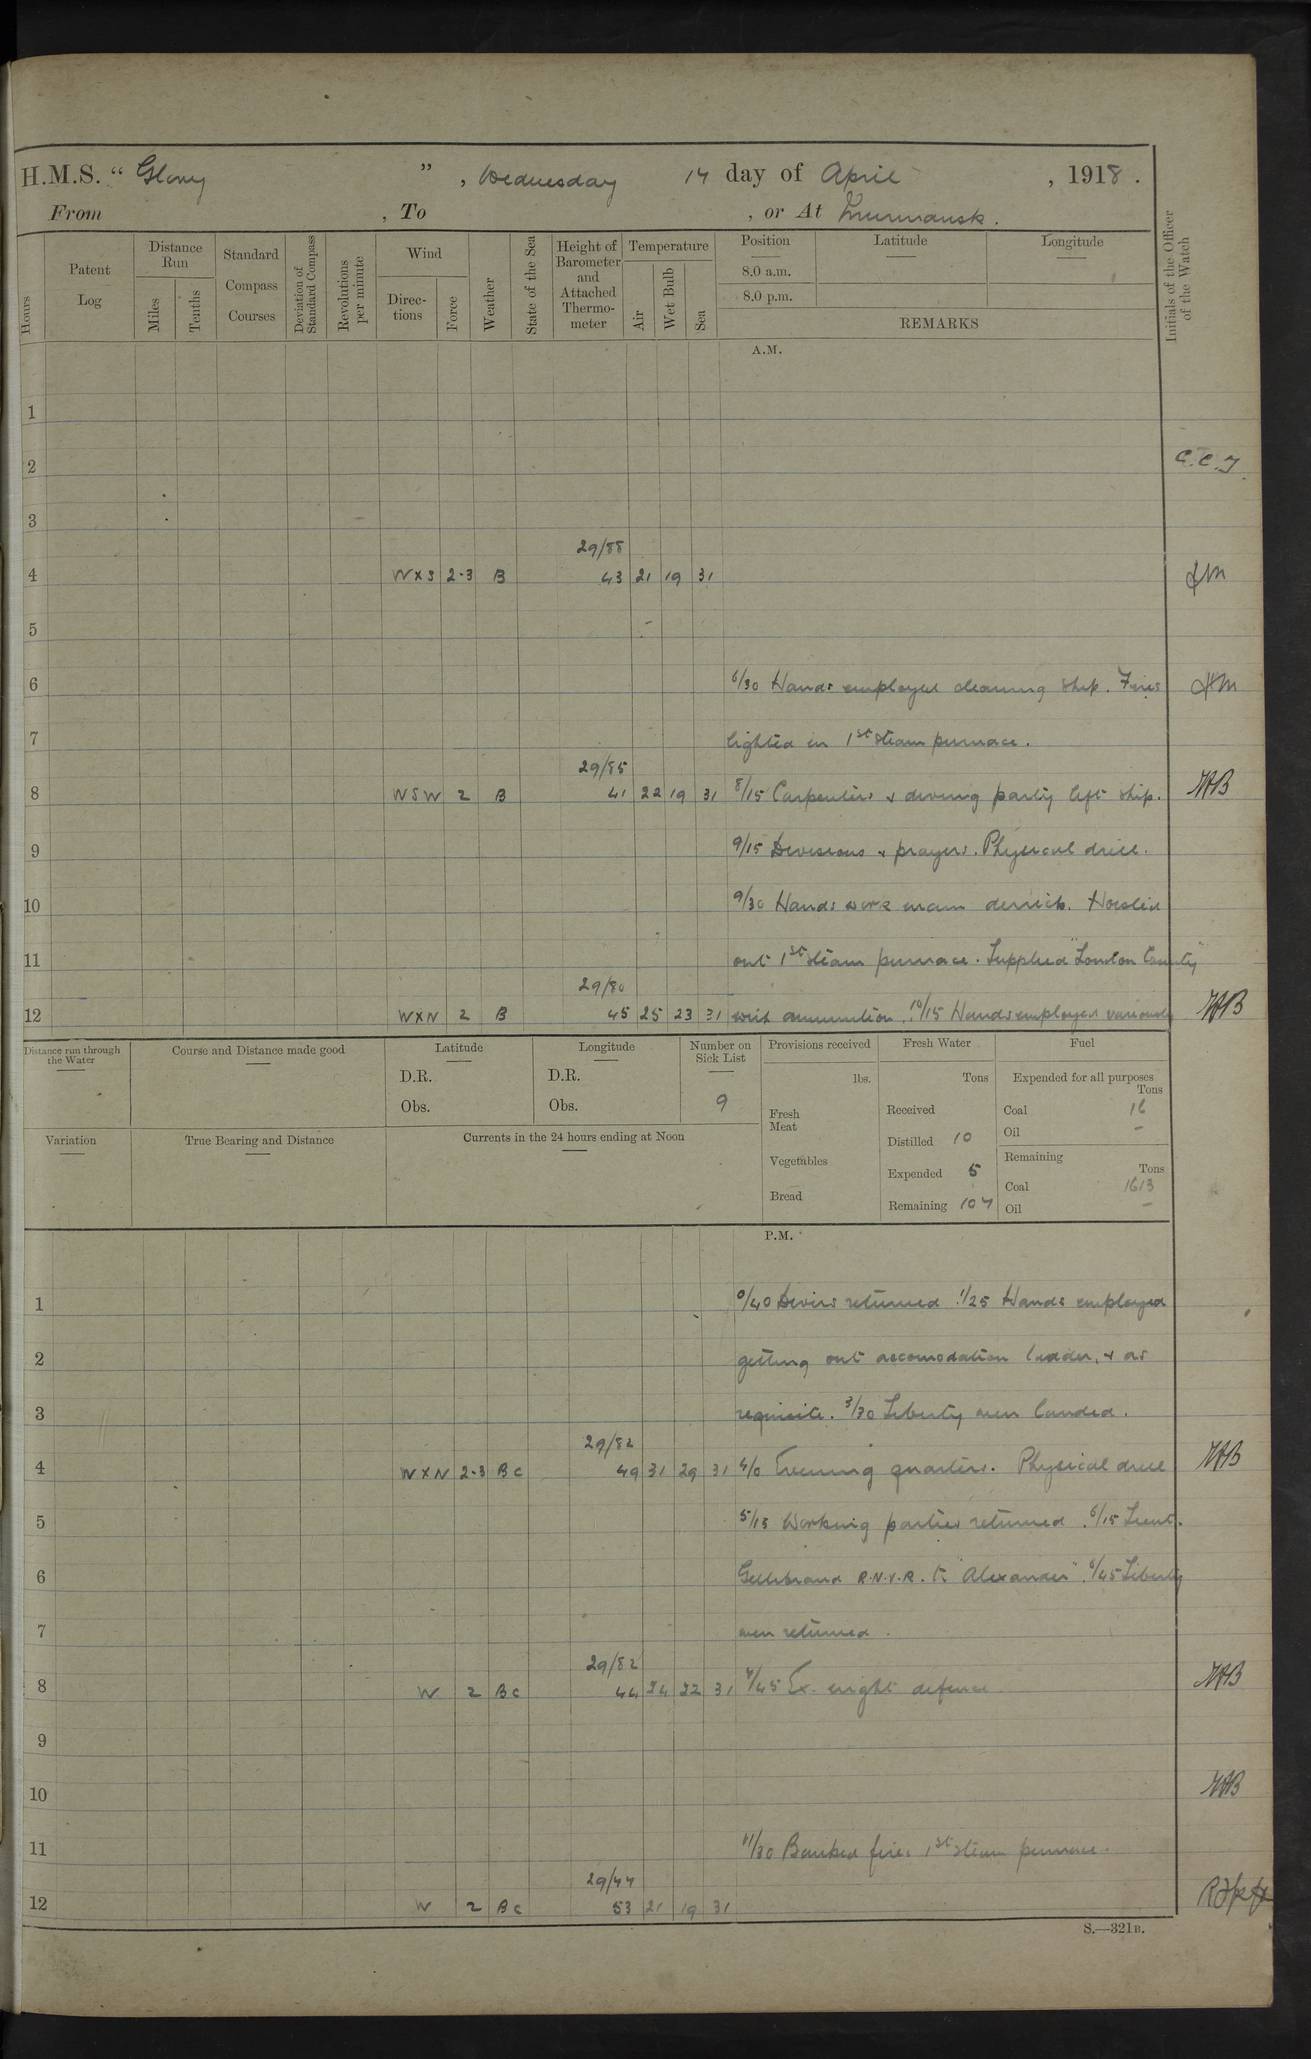 H.M.S. " Glory " , Wednesday 17 day of April , 1918 .
From , To , or At Murmansk .
Hours
Patent Log
Distance Run
Miles
Tenths
Standard Compass Courses
Deviation of Standard Compass
Revolutions per minute
Wind
Direc-tions
Force
Weather
State of the Sea
Height of Barometer and Attached Thermo-meter
Temperature
Air
Wet Bulb
Sea
Position
8.0 a.m.
8.0 p.m.
Latitude
Longitude
REMARKS
Initials of the Officer of the Watch
A.M.
1
2 C.C.J.
3
29/88
4 W×S 2-3 B 43 21 19 31
5
6 6/30 Hands employed cleaning ship. Fires
7 lighted in 1st steam pinnace.
29/85
8 WSW 2 B 41 22 19 31 8/15 Carpenters & diving party left ship. MAB
9 9/15 Divisions & prayers. Physical drill.
10 9/30 Hands work main derrick. Hoisted
11 out 1st steam pinnace. Supplied "London County"
29/80
12 W×N 2 B 45 25 23 31 with ammunition. 10/15 Hands employed variously MAB
Distance run through the Water
Course and Distance made good
Latitude
D.R.
Obs.
Longitude
D.R.
Obs.
Number on Sick List
9
Provisions received
lbs.
Fresh Meat
Vegetables
Bread
Fresh Water
Tons
Received
Distilled 10
Expended 5
Remaining 107
Fuel
Expended for all purposes
Tons
Coal 16
Oil -
Remaining
Tons
Coal 1613
Oil -
Variation
True Bearing and Distance
Currents in the 24 hours ending at Noon
P.M.
1 0/40 Divers returned. 1/25 Hands employed
2 getting out accomodation ladder, & as
3 requisite. 3/30 Liberty men landed.
29/82
4 W×N 2-3 Bc 49 31 29 31 4/0 Evening quarters. Physical drill MAB
5 5/15 Working parties returned. 6/15 Lieut.
6 Gellibrand R.N.V.R. to "Alexander". 6/45 Liberty
7 men returned.
29/82
8 W 2 Bc 44 24 22 31 7/45 Ex. night defence MAB
9
10 MAB
11 11/30 Banked fires 1st steam pinnace.
29/77
12 W 2 Bc 53 21 19 31
S.—321B.